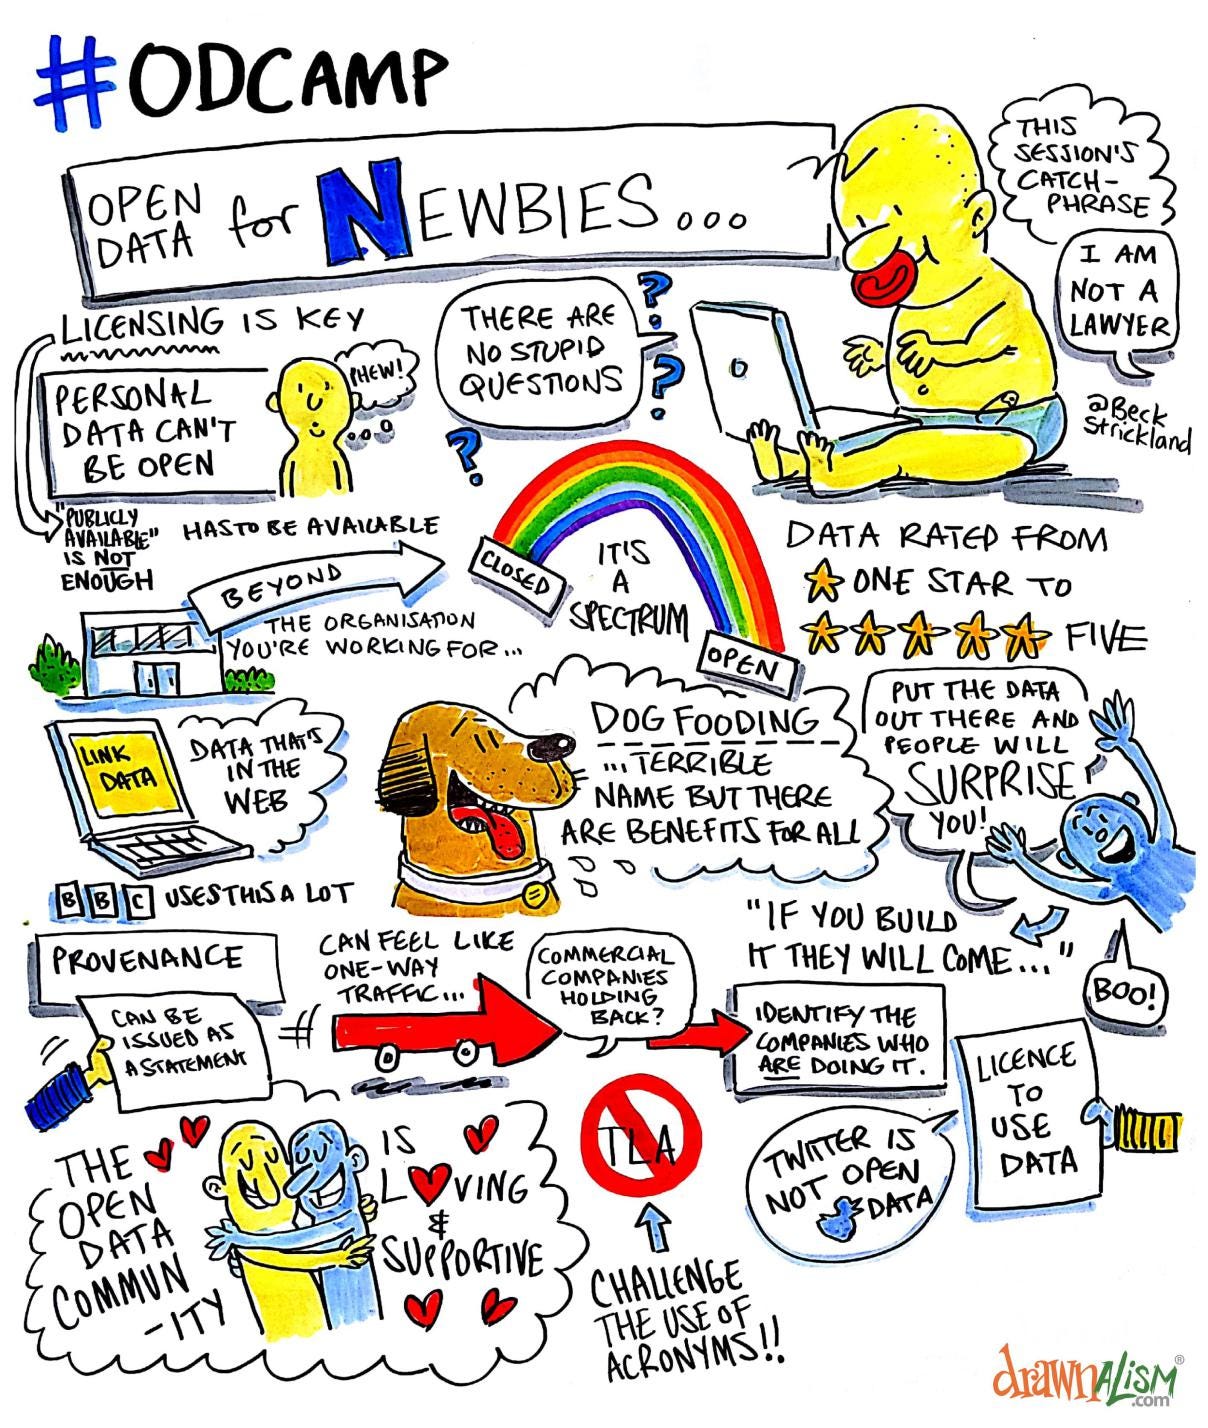 #ODCAMP
OPEN
DATA for NEWBIES...
THIS
SESSION'S
CATCH-
PHRASE
I AM
NOT A
LAWYER
@Beck
Strickland
LICENSING IS KEY
PERSONAL
DATA CAN'T
BE OPEN
PHEW!
THERE ARE
NO STUPID
QUESTIONS
?
?
?
?
"PUBLICLY
AVAILABLE"
IS NOT
ENOUGH
HAS TO BE AVAILABLE
BEYOND
THE ORGANISATION
YOU'RE WORKING FOR...
CLOSED
IT'S
A
SPECTRUM
OPEN
DATA RATED FROM
ONE STAR TO
FIVE
LINK
DATA
DATA THAT'S
IN THE
WEB
BBC USES THIS A LOT
DOG FOODING
...TERRIBLE
NAME BUT THERE
ARE BENEFITS FOR ALL
PUT THE DATA
OUT THERE AND
PEOPLE WILL
SURPRISE
YOU!
"IF YOU BUILD
IT THEY WILL COME..."
BOO!
PROVENANCE
CAN BE
ISSUED AS
A STATEMENT
CAN FEEL LIKE
ONE-WAY
TRAFFIC...
COMMERCIAL
COMPANIES
HOLDING
BACK?
IDENTIFY THE
COMPANIES WHO
ARE DOING IT.
LICENCE
TO
USE
DATA
TWITTER IS
NOT OPEN
DATA
THE
OPEN
DATA
COMMUN
-ITY
IS
LVING
&
SUPPORTIVE
TLA
CHALLENGE
THE USE OF
ACRONYMS!!
drawnALISM®
.com